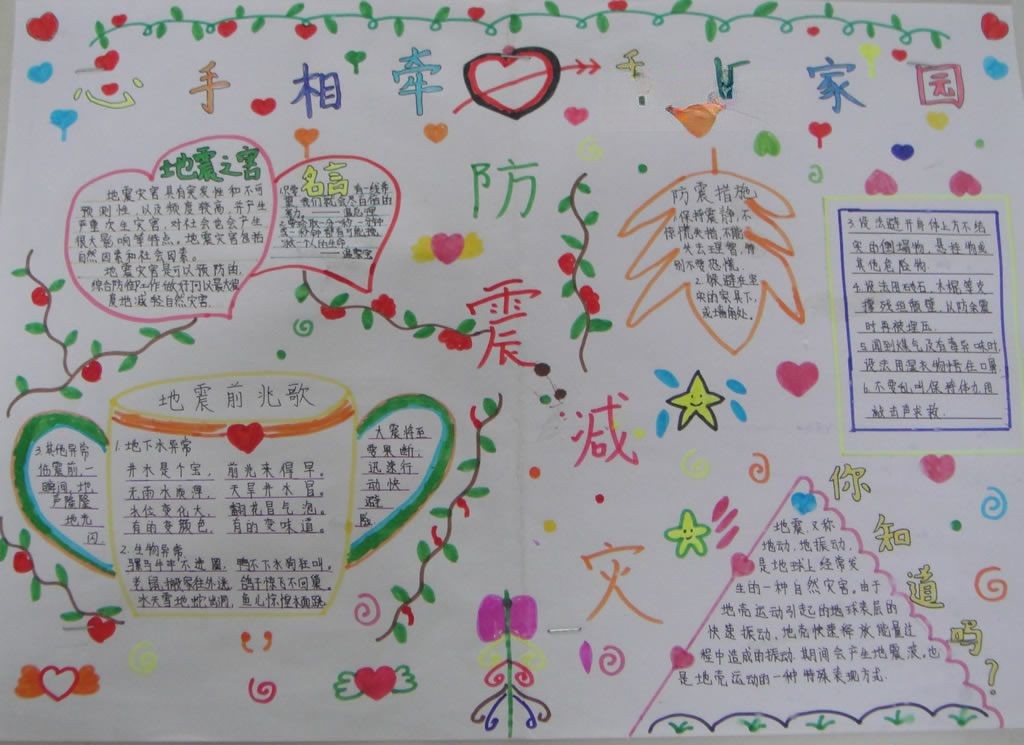 心手相牵
家园
防震减灾
地震之害
地震灾害具有突发性和不可
预测性,以及频度较高,并产生
严重次生灾害,对社会也会产生
很大影响等特点。地震灾害包括
自然因素和社会因素。
地震灾害是可以预防的,
综合防御工作做好可以最大
度地减轻自然灾害.
名言
防震措施
1.保持镇静,不
惊慌失措,不能
失去理智,特
别不要恐慌。
2.躲避在坚
实的家具下,
或墙角处。
3.设法避开身体上方不结
实的倒塌物,悬挂物或
其他危险物.
4.设法用砖石、木棍等支
撑残垣断壁,以防余震
时再被埋压.
5.闻到煤气及有毒异味时,
设法用湿衣物捂住口鼻
6.不要乱叫保持体力,用
敲击声求救.
地震前兆歌
1.地下水异常
井水是个宝,前兆来得早。
无雨水质浑,天旱井水冒。
水位变化大,翻花冒气泡。
有的变颜色,有的变味道。
2.生物异常
骡马牛羊不进圈,鸭不下水狗狂叫。
老鼠搬家往外逃,鸽子惊飞不回巢
冰天雪地蛇出洞,鱼儿惊惶水面跳
3.其他异常
临震前,一
瞬间,地
声隆隆
地光
闪
大震将至
要果断,
迅速行
动快
避
险
你知道吗?
地震,又称
地动,地振动,
是地球上经常发
生的一种自然灾害。由于
地壳运动引起的地球表层的
快速振动,地壳快速释放能量过
程中造成的振动.期间会产生地震波,也
是地壳运动的一种特殊表现方式.